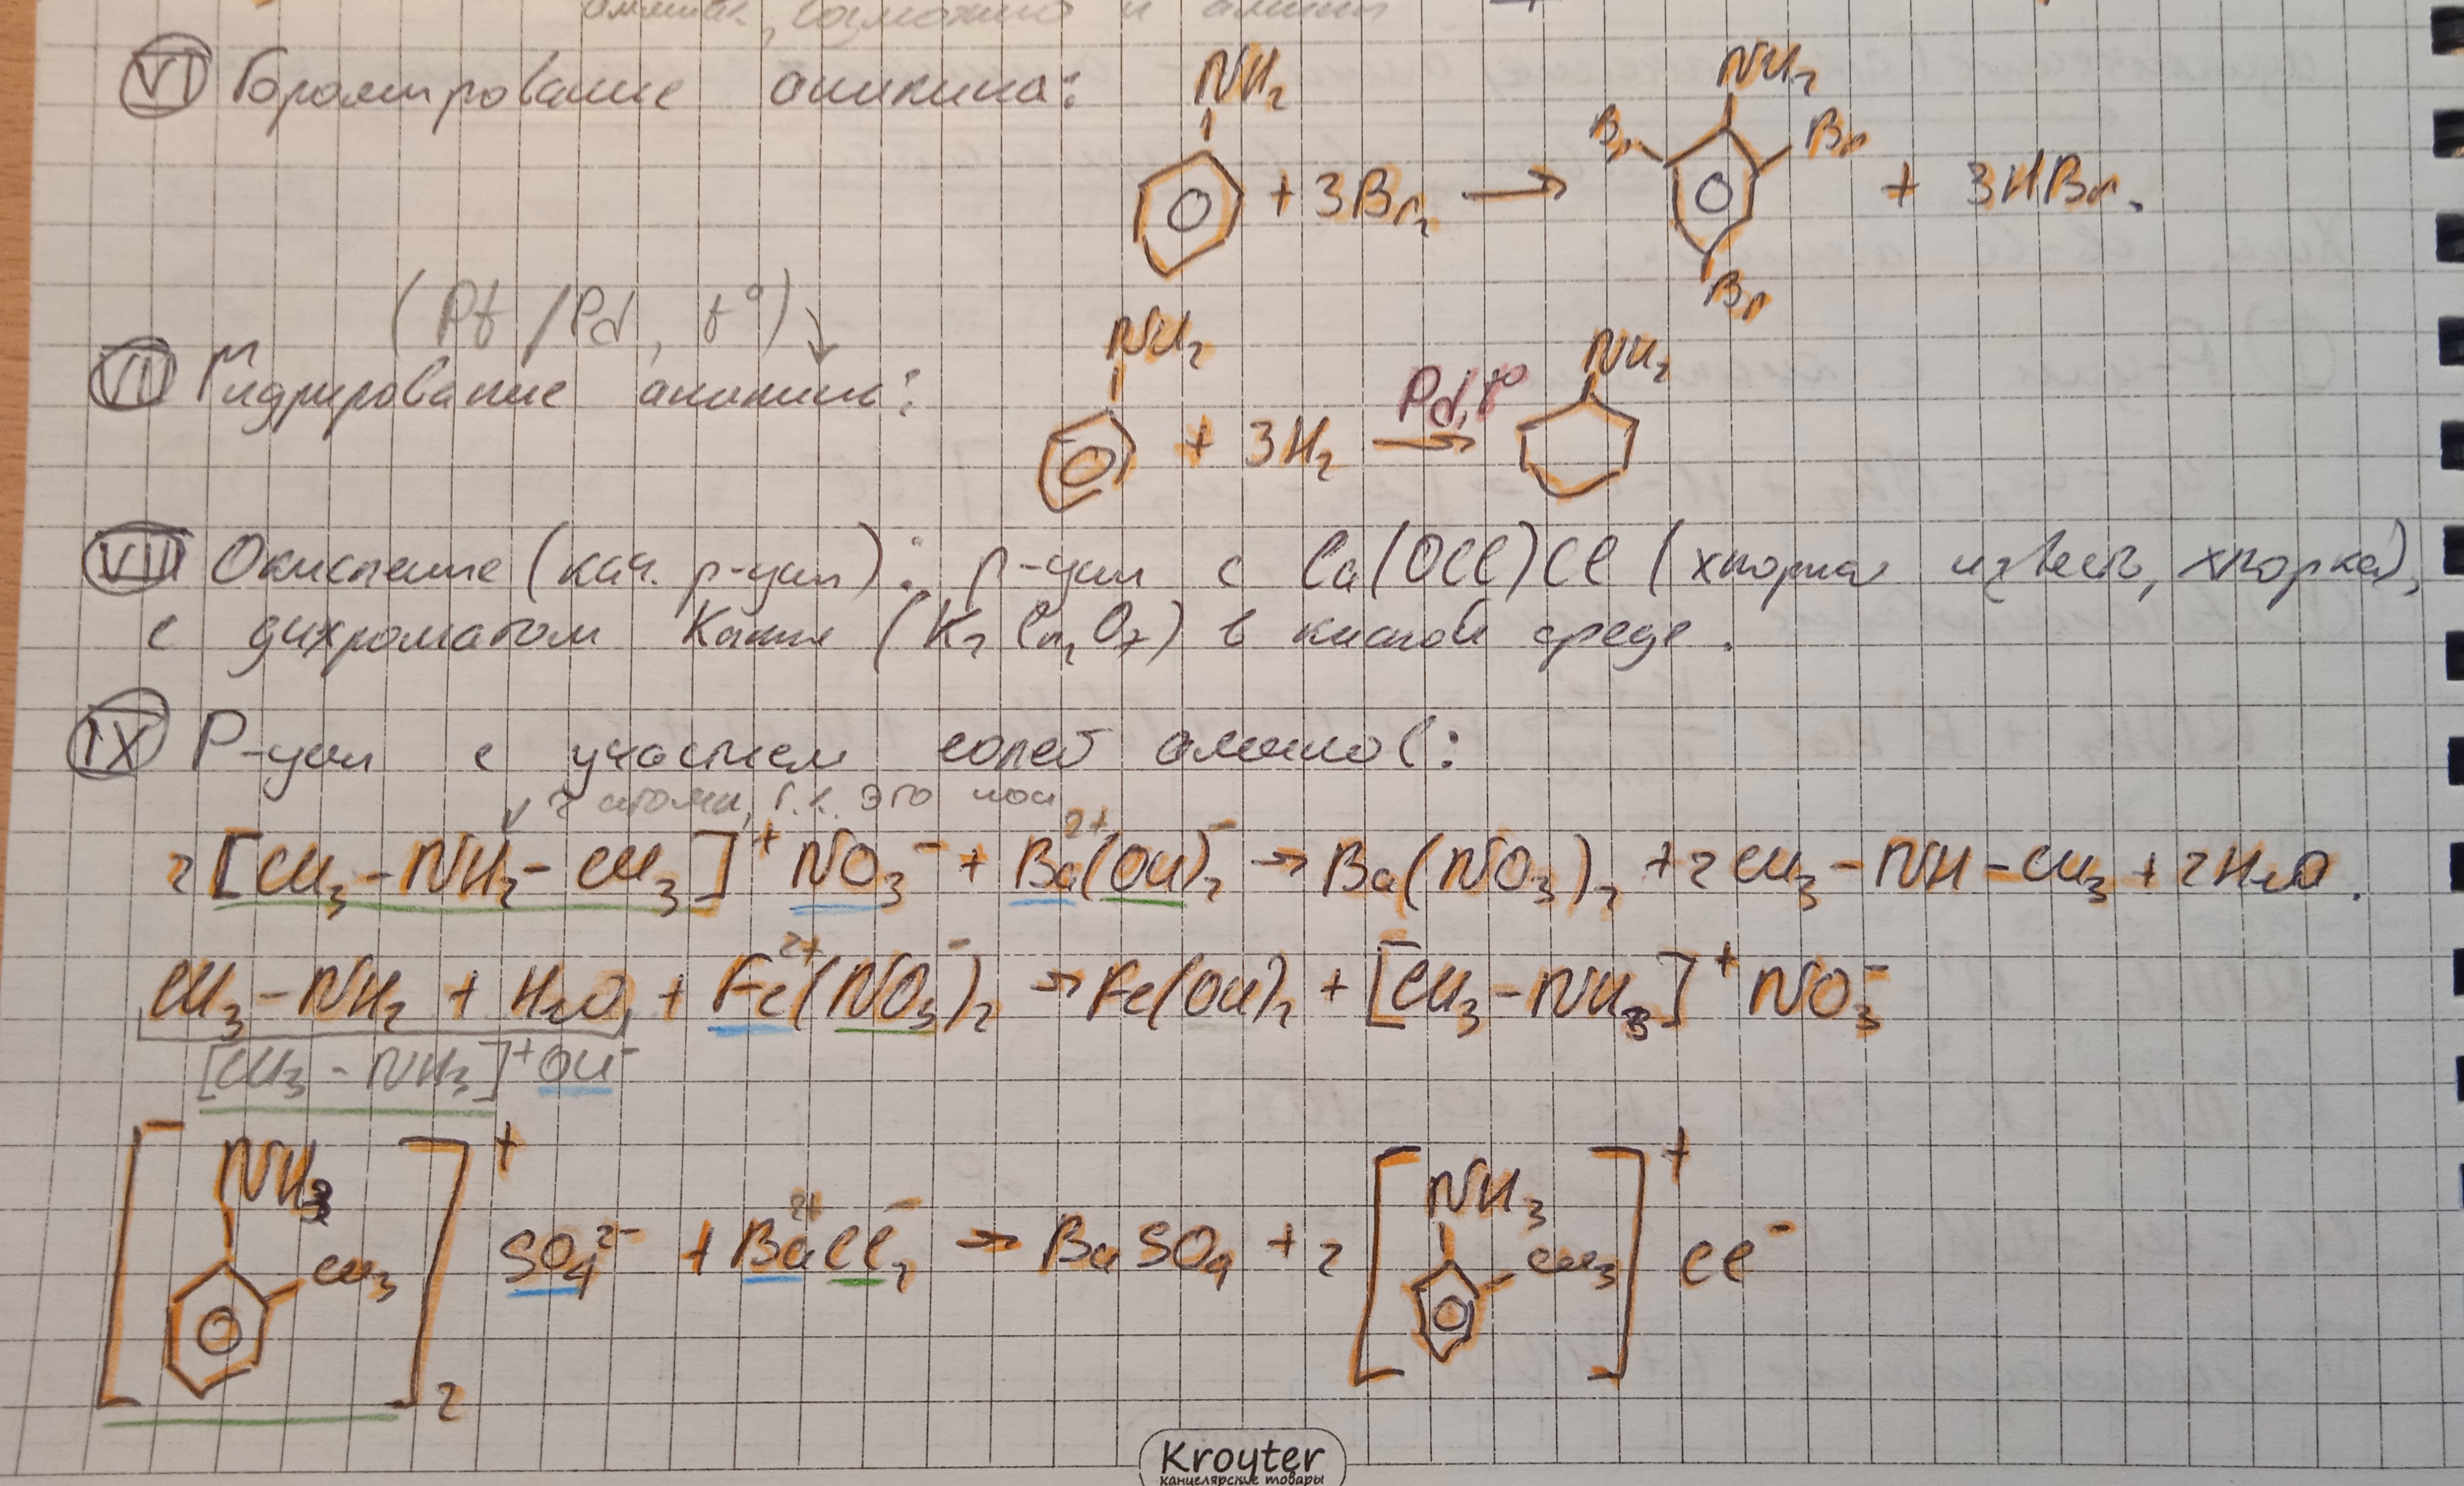 аммиак, возможно и амины
VI Бромирование анилина:
NH2 + 3Br2 → NH2 Br Br Br + 3HBr.
(Pt/Pd, t°)
VII Гидрирование анилина:
NH2 + 3H2 Pd, t° → NH2
VIII Окисление (кач. р-ции): р-ции с Ca(OCl)Cl (хлорная известь, хлорка),
с дихроматом Калия (K2Cr2O7) в кислой среде.
IX Р-ции с участием солей аминов:
2 атома, т.к. это ион
2[CH3-NH2-CH3]⁺NO3⁻ + Ba²⁺(OH)2⁻ → Ba(NO3)2 + 2CH3-NH-CH3 + 2H2O.
CH3-NH2 + H2O + Fe²⁺(NO3)2⁻ → Fe(OH)2 + [CH3-NH3]⁺NO3⁻
[CH3-NH3]⁺OH⁻
[NH3 CH3]2⁺ SO4²⁻ + Ba²⁺Cl2⁻ → BaSO4 + 2[NH3 CH3]⁺ Cl⁻
Kroyter
канцелярские товары